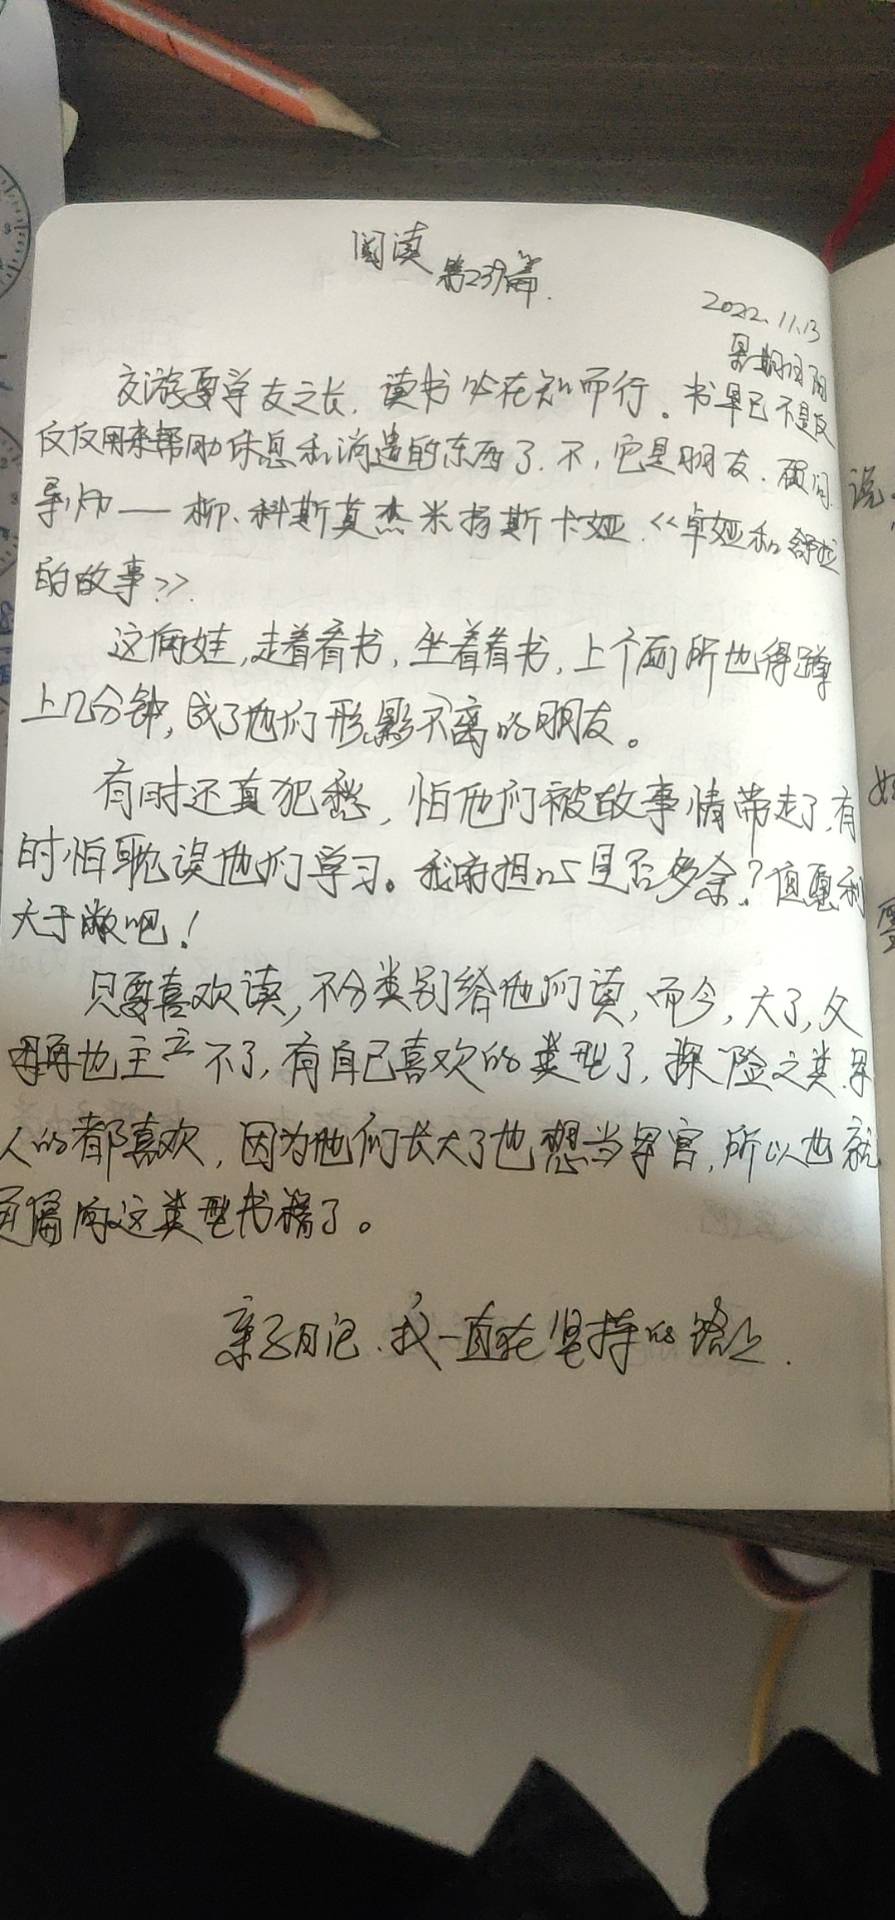 阅读 第239篇
2022.11.13
星期日 阴
交游要学友之长，读书必在知而行。书早已不是仅
仅仅用来帮助休息和消遣的东西了，不，它是朋友、顾问、
导师——柳·科斯莫杰米扬斯卡娅《卓娅和舒拉
的故事》
这俩娃，走着看书，坐着看书，上个厕所也得蹲
上几分钟，成了他们形影不离的朋友。
有时还真犯愁，怕他们被故事情带走了，有
时怕耽误他们学习。我的担心是否多余？但愿利
大于
吧！
只要喜欢读，不分类别给他们读，而今，大了，父
母再也主 不了，有自已喜欢的类型了，探险之类，军
人的都喜欢，因为他们长大了也想当军官，所以也就
更偏向这类型书籍了。
亲子日记，我一直在坚持的路上.
说